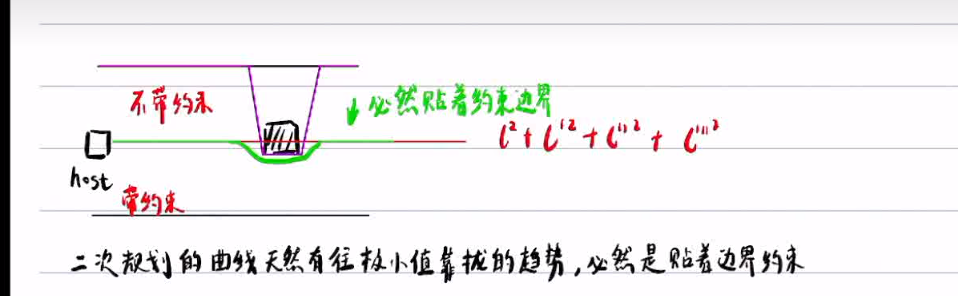 不带约束
必然贴着约束边界
l² + l'² + l''² + l'''²
host
带约束
二次规划的曲线天然有往极小值靠拢的趋势,必然是贴着边界约束